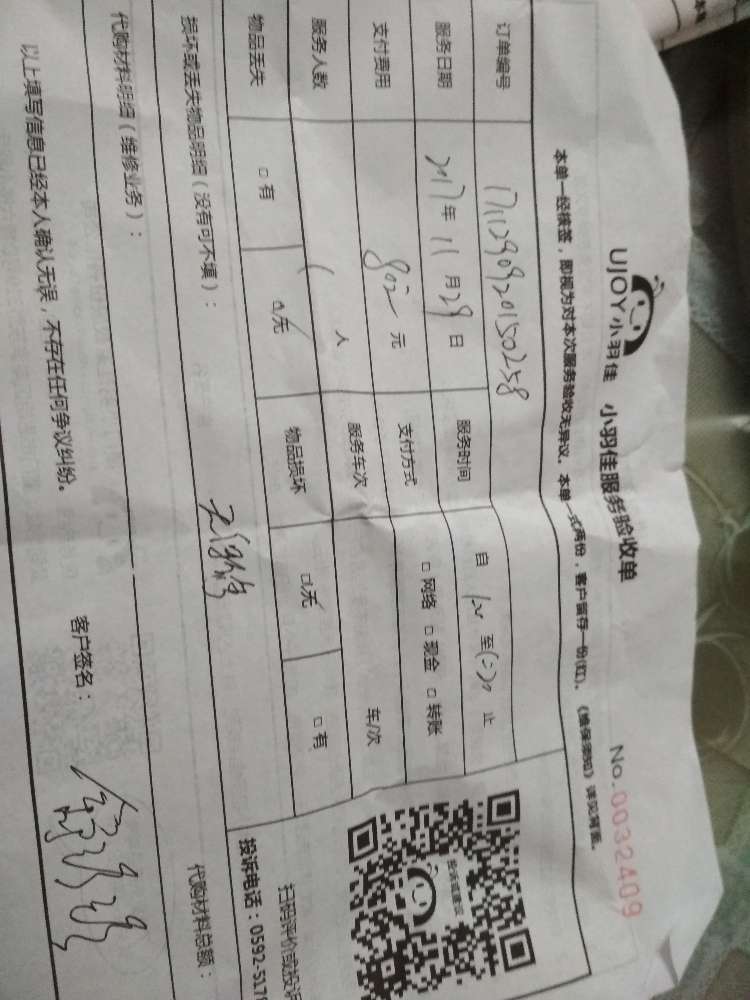 UJOY小羽佳 小羽佳服务验收单 No.0032409
本单一经核签，即视为对本次服务验收无异议。本单一式两份，客户留存一份(红)。《维保须知》详见背面。
订单编号 1711290920150258
服务日期 2017年11月29日 服务时间 自 至 止
支付费用 80元 支付方式 □网络 □现金 □转账
服务人数 1人 服务车次 车/次
物品丢失 □有 □无 物品损坏 □无 □有
损坏或丢失物品明细（没有可不填）：
代购材料明细（维修业务）：
代购材料总额：
以上填写信息已经本人确认无误，不存在任何争议纠纷。
客户签名：
投诉或建议
扫码评价或投诉
投诉电话：0592-517